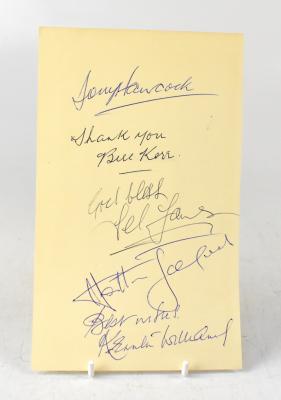 Tony Hancock
Thank you
Bill Kerr.
God bless
Sid James
Hattie Jacques
Best wishes
Kenneth Williams